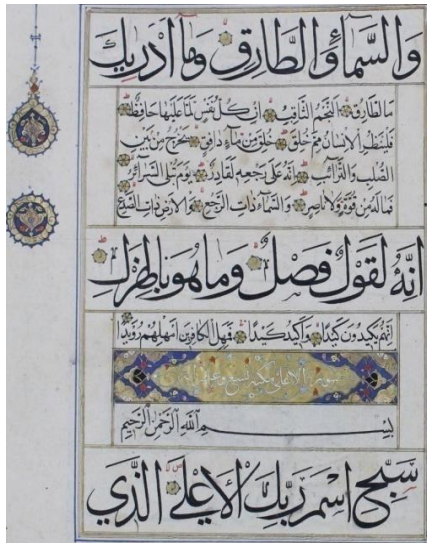 والسماء والطارق وما ادريك
ما الطارق النجم الثاقب ان كل نفس لما عليها حافظ
فلينظر الانسان مم خلق خلق من ماء دافق يخرج من بين
الصلب والترائب انه على رجعه لقادر يوم تبلى السرائر
فما له من قوة ولا ناصر والسماء ذات الرجع والارض ذات الصدع
انه لقول فصل وما هو بالهزل
انهم يكيدون كيدا واكيد كيدا فمهل الكافرين امهلهم رويدا
سورة الاعلى مكية تسع وعشر اية
بسم الله الرحمن الرحيم
سبح اسم ربك الاعلى الذي